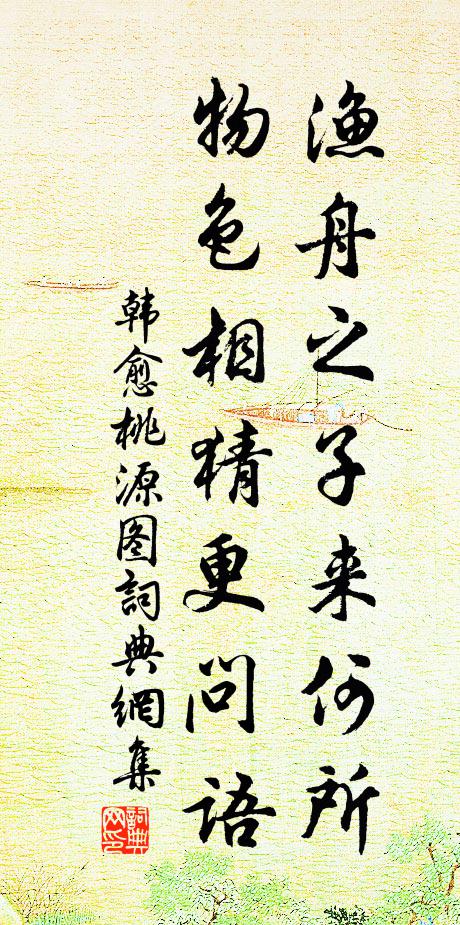 渔舟之子来何所
物色相猜更问语
韩愈桃源图詞典網集
詞典网印